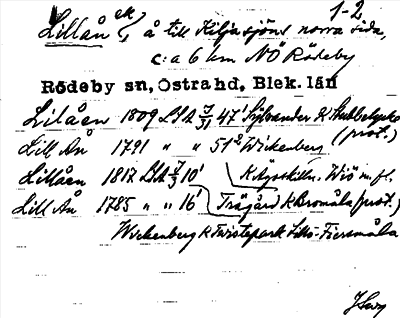 1-2
Lillån ek, å till Kiljasjöns norra sida,
c:a 6 km NÖ Rödeby
Rödeby sn, Östra hd, Blek. län
Lilåen 1809 LSA 47' Sylvander K Stubbelycke
(prot.)
Lill Ån 1791 " " 51² Wickenberg
Lillåen 1817 LSA 10' K Wiö m.fl.
Lill Ån 1785 " " 16' Trägård K Bromåla (prot.)
Wickenberg K Tvistepark Lilla Fiersmåla